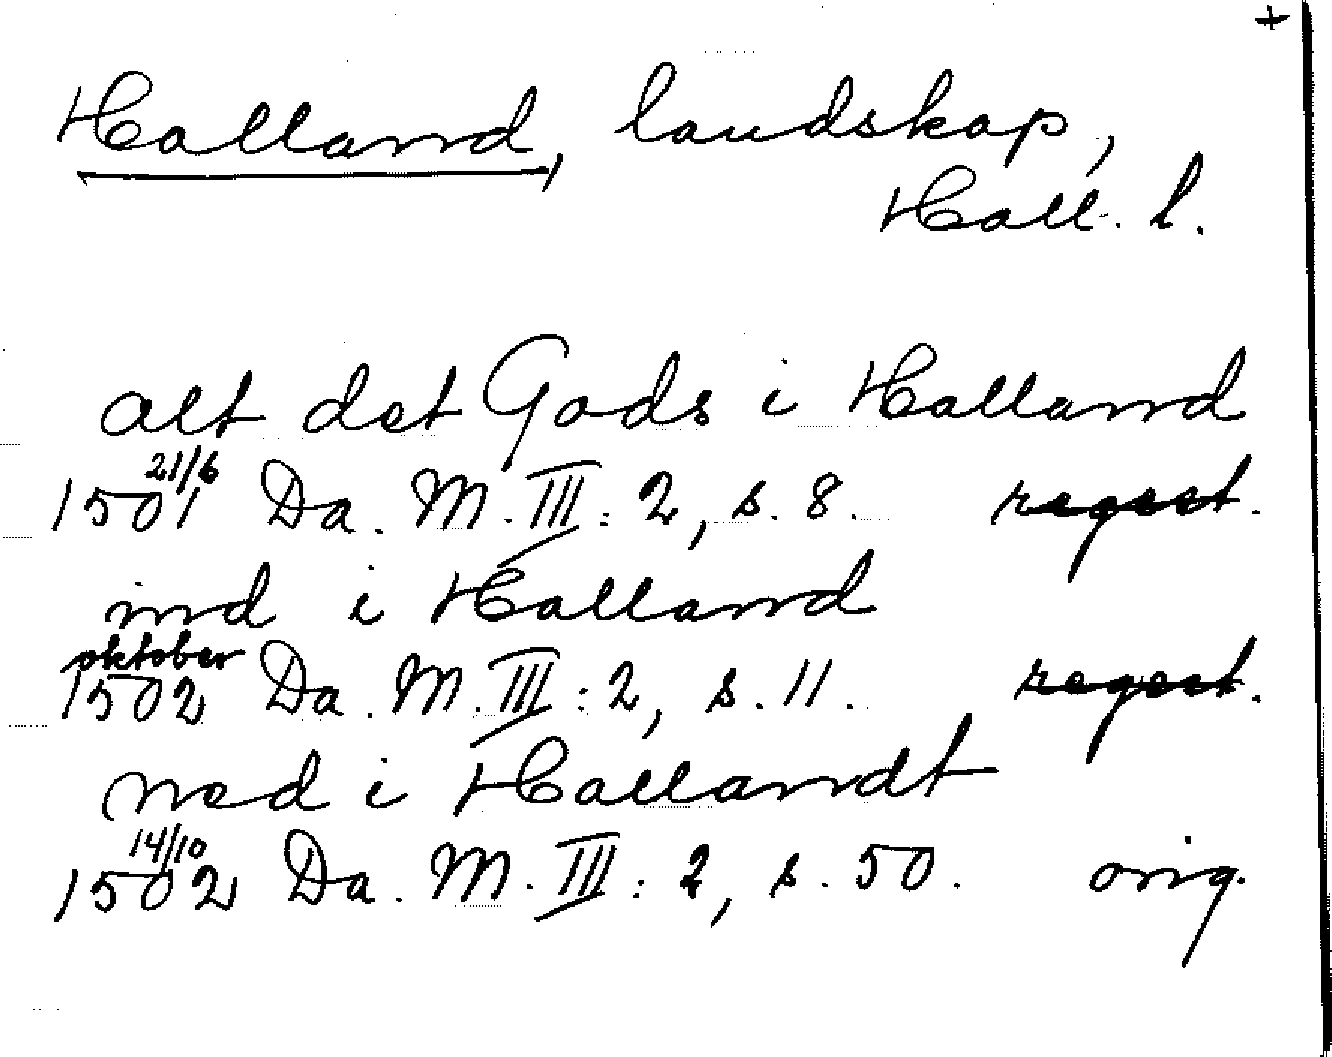 +
Halland, landskap,
Hall. l.
alt det Gods i Halland
21/6
1501 Da. M. III: 2, s. 8. regest.
ind i Halland
oktober
1502 Da. M. III: 2, s. 11. regest.
ned i Hallandt
14/10
1502 Da. M. III: 2, s. 50. orig.